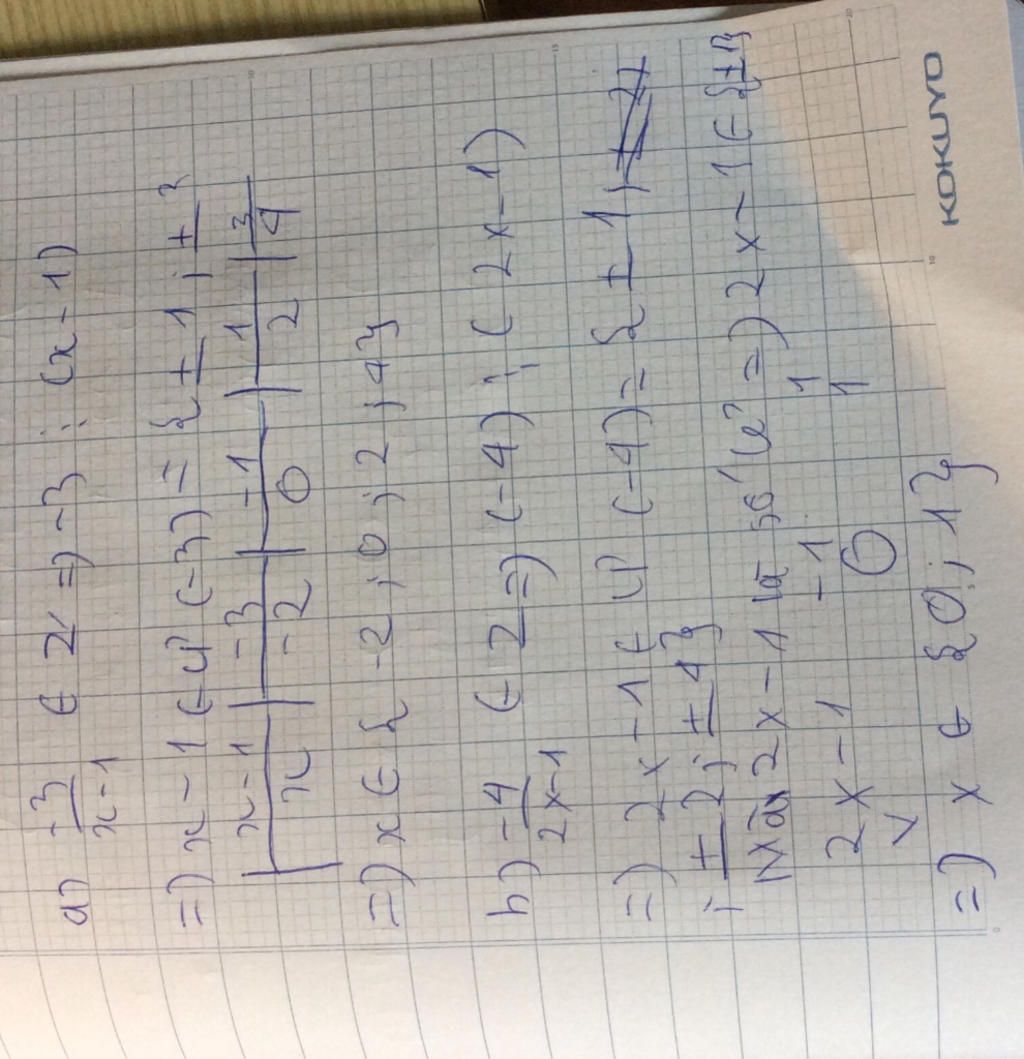 a) -3/x-1 ∈ Z => -3 ⋮ (x-1)
=> x-1 ∈ Ư(-3) = {±1; ±3
x-1 | -3 | -1 | 1 | 3
x | -2 | 0 | 2 | 4
=> x ∈ {-2; 0; 2; 4}
b) -4/2x-1 ∈ Z => (-4) ⋮ (2x-1)
=> 2x-1 ∈ Ư(-4) = {±1;
; ±2; ±4}
Mà 2x-1 là số lẻ => 2x-1 ∈ {±1}
2x-1 -1 1
x 0 1
=> x ∈ {0; 1}
KOKUYO